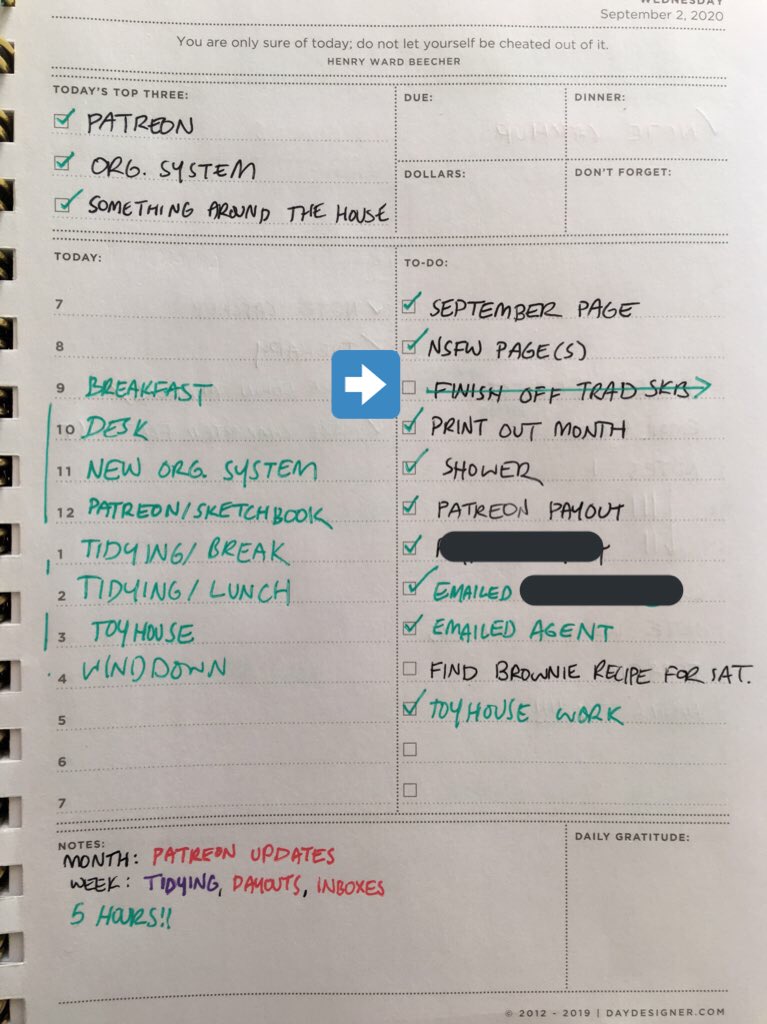 WEDNESDAY
September 2, 2020
You are only sure of today; do not let yourself be cheated out of it.
HENRY WARD BEECHER
TODAY'S TOP THREE:
PATREON
ORG. SYSTEM
SOMETHING AROUND THE HOUSE
DUE:
DINNER:
DOLLARS:
DON'T FORGET:
TODAY:
7
8
9 BREAKFAST
10 DESK
11 NEW ORG. SYSTEM
12 PATREON/SKETCHBOOK
1 TIDYING/BREAK
2 TIDYING/LUNCH
3 TOYHOUSE
4 WIND DOWN
5
6
7
TO-DO:
SEPTEMBER PAGE
NSFW PAGE(S)
FINISH OFF TRAD SKB
PRINT OUT MONTH
SHOWER
PATREON PAYOUT
EMAILED
EMAILED AGENT
FIND BROWNIE RECIPE FOR SAT.
TOYHOUSE WORK
NOTES:
MONTH: PATREON UPDATES
WEEK: TIDYING, PAYOUTS, INBOXES
5 HOURS!!
DAILY GRATITUDE:
© 2012 - 2019 | DAYDESIGNER.COM